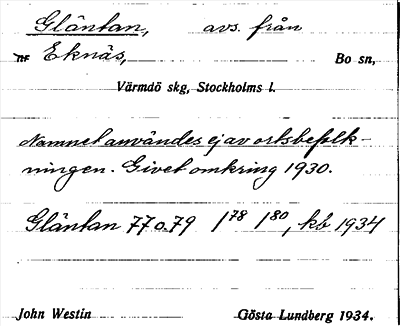 Gläntan, avs. från
Eknäs, Bo sn,
Värmdö skg, Stockholms l.
Namnet användes ej av ortsbefolk-
ningen. Givet omkring 1930.
Gläntan 77 o. 79 1/78 1/80, kb 1934
John Westin Gösta Lundberg 1934.